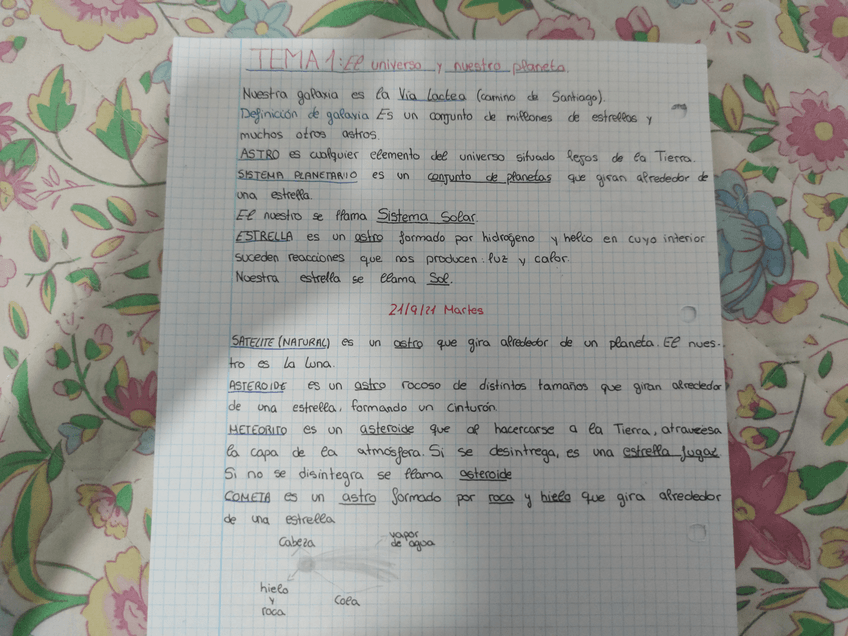 TEMA 1: El universo y nuestro planeta
Nuestra galaxia es la Vía Lactea (camino de Santiago).
Definicción de galaxia Es un conjunto de millones de estrellas y
muchos otros astros.
ASTRO es cualquier elemento del universo situado lejos de la Tierra.
SISTEMA PLANETARIO es un conjunto de planetas que giran alrededor de
una estrella.
El nuestro se llama Sistema Solar.
ESTRELLA es un astro formado por hidrógeno y helio en cuyo interior
suceden reacciones que nos producen luz y calor.
Nuestra estrella se llama Sol.
21/9/21 Martes
SATELITE (NATURAL) es un astro que gira alrededor de un planeta. El nues-
tro es la Luna.
ASTEROIDE es un astro rocoso de distintos tamaños que giran alrededor
de una estrella, formando un cinturón.
METEORITO es un asteroide que al hacercarse a la Tierra, atraviesa
la capa de la atmósfera. Si se desintrega, es una estrella fugaz
Si no se disintegra se llama asteroide
COMETA es un astro formado por roca y hielo que gira alrededor
de una estrella
Cabeza
vapor
de agua
hielo
y
roca
Cola